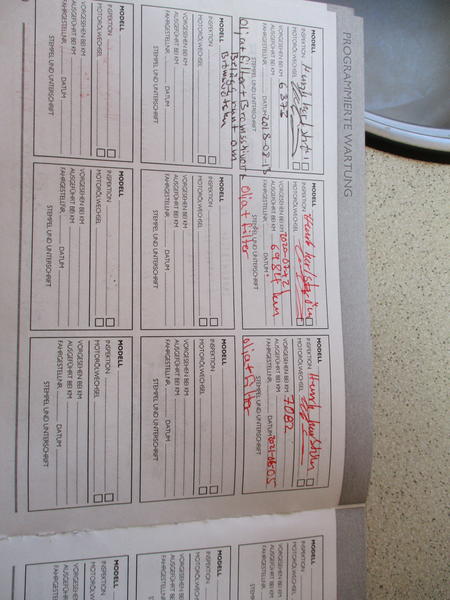 PROGRAMMIERTE WARTUNG
MODELL
INSPEKTION
MOTORÖLWECHSEL
VORGESEHEN BEI KM
AUSGEFÜHRT BEI KM 6372
FAHRGESTELLNR. DATUM 2018-08-13
STEMPEL UND UNTERSCHRIFT
Olja+filter+Bromsvätska
MODELL
INSPEKTION
MOTORÖLWECHSEL
VORGESEHEN BEI KM 2020-07-22
AUSGEFÜHRT BEI KM 6984 km
FAHRGESTELLNR. DATUM
STEMPEL UND UNTERSCHRIFT
Olja+filter
MODELL
INSPEKTION
MOTORÖLWECHSEL
VORGESEHEN BEI KM
AUSGEFÜHRT BEI KM 7082
FAHRGESTELLNR. DATUM
STEMPEL UND UNTERSCHRIFT
Olja+filter
MODELL
INSPEKTION
MOTORÖLWECHSEL
VORGESEHEN BEI KM
AUSGEFÜHRT BEI KM
FAHRGESTELLNR. DATUM
STEMPEL UND UNTERSCHRIFT
MODELL
INSPEKTION
MOTORÖLWECHSEL
VORGESEHEN BEI KM
AUSGEFÜHRT BEI KM
FAHRGESTELLNR. DATUM
STEMPEL UND UNTERSCHRIFT
MODELL
INSPEKTION
MOTORÖLWECHSEL
VORGESEHEN BEI KM
AUSGEFÜHRT BEI KM
FAHRGESTELLNR. DATUM
STEMPEL UND UNTERSCHRIFT
MODELL
INSPEKTION
MOTORÖLWECHSEL
VORGESEHEN BEI KM
AUSGEFÜHRT BEI KM
FAHRGESTELLNR. DATUM
STEMPEL UND UNTERSCHRIFT
MODELL
INSPEKTION
MOTORÖLWECHSEL
VORGESEHEN BEI KM
AUSGEFÜHRT BEI KM
FAHRGESTELLNR. DATUM
STEMPEL UND UNTERSCHRIFT
MODELL
INSPEKTION
MOTORÖLWECHSEL
VORGESEHEN BEI KM
AUSGEFÜHRT BEI KM
FAHRGESTELLNR. DATUM
STEMPEL UND UNTERSCHRIFT
MODELL
INSPEKTION
MOTORÖLWECHSEL
VORGESEHEN BEI KM
AUSGEFÜHRT BEI KM
FAHRGESTELLNR.
STEMPEL UND
MODELL
INSPEKTION
MOTORÖLWECHSEL
VORGESEHEN BEI KM
AUSGEFÜHRT BEI KM
FAHRGESTELLNR.
STEMPEL UN
MODELL
INSPEKTION
MOTORÖLWECHSEL
VORGESEHEN BEI KM
AUSGEFÜHRT BEI KM
FAHRGESTELLNR.